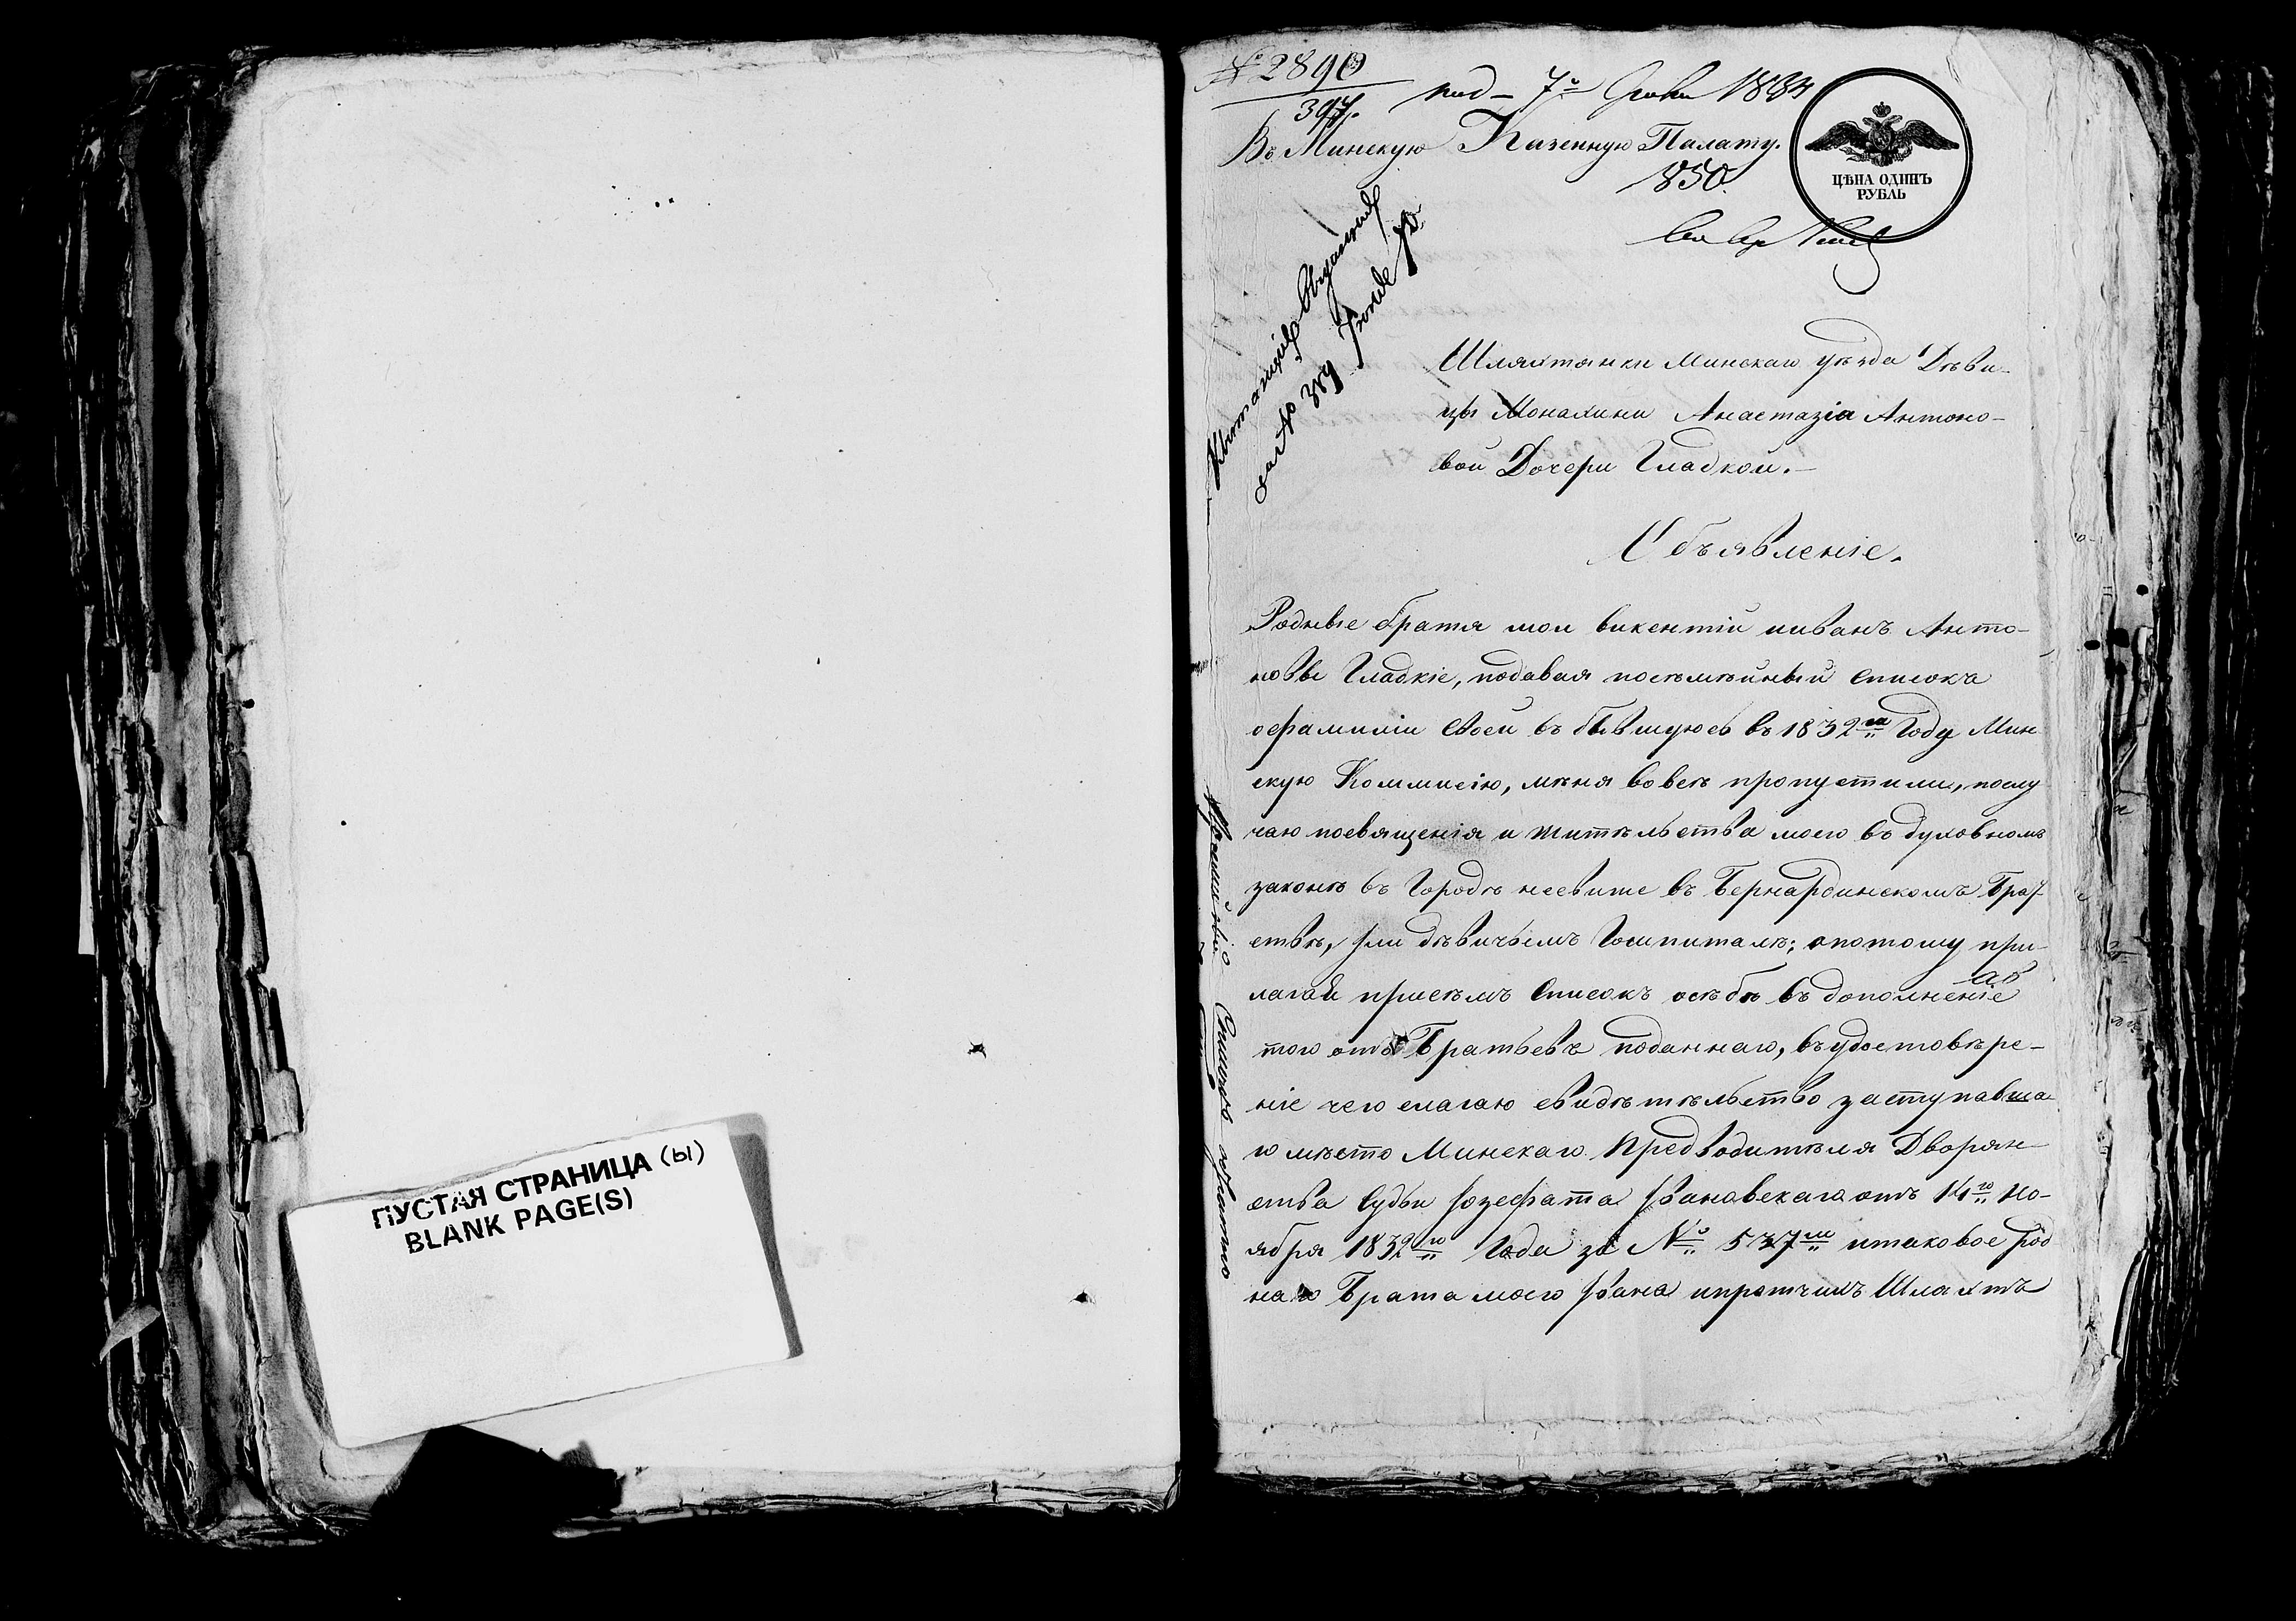 ПУСТАЯ СТРАНИЦА (Ы)
BLANK PAGE(S)
№ 2890
397.
под – 7го 1834
Въ Минскую Казенную Палату.
850.
ЦѢНА ОДИНЪ
РУБЛЬ
Шляхтянки Минскаго уѣзда Дѣви-
цы Монахини Анастазіи Антоно-
вой Дочери Гладкой.–
Объявленіе.
Родныe братя мои викентій ииванъ Анто-
новы Гладкіе, подавая посѣмѣйный списокъ
офамиліи своей въ бывшуюсь въ 1832м Году Мин
скую Коммисію, мѣня вовсѣ пропустили, послу
чаю посвященія и житѣльства моего въ духовномъ
законѣ въ Городѣ несвиже въ Бернардинскомъ Брат
ствѣ, или дѣвичьемъ Гошпиталѣ; апотому при
лагая присѣмъ списокъ осѣбѣ въ дополненіе
того отъ Братьевъ поданнаго, въудостовѣре-
ніе чего слагаю свидѣтѣльство заступавша
го мѣсто Минскаго Предводитѣля Дворян
ства Судьи Іозефата Івановскаго отъ 14го но-
ября 1832го Года за № 537м итаковое род
наго Брата моего Ивана ипротчихъ Шляхтъ
Посемейный Списокъ